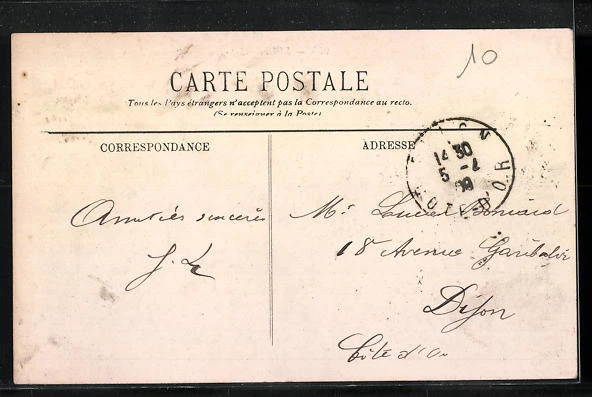 10
CARTE POSTALE
Tous les Pays étrangers n'acceptent pas la Correspondance au recto.
(Se renseigner à la Poste)
CORRESPONDANCE
ADRESSE
DIJON
14 30
5 - 4
09
COTE D'OR
Amitiés sincères
Mr Lucien
18 Avenue Garibaldi
Dijon
Côte d'Or